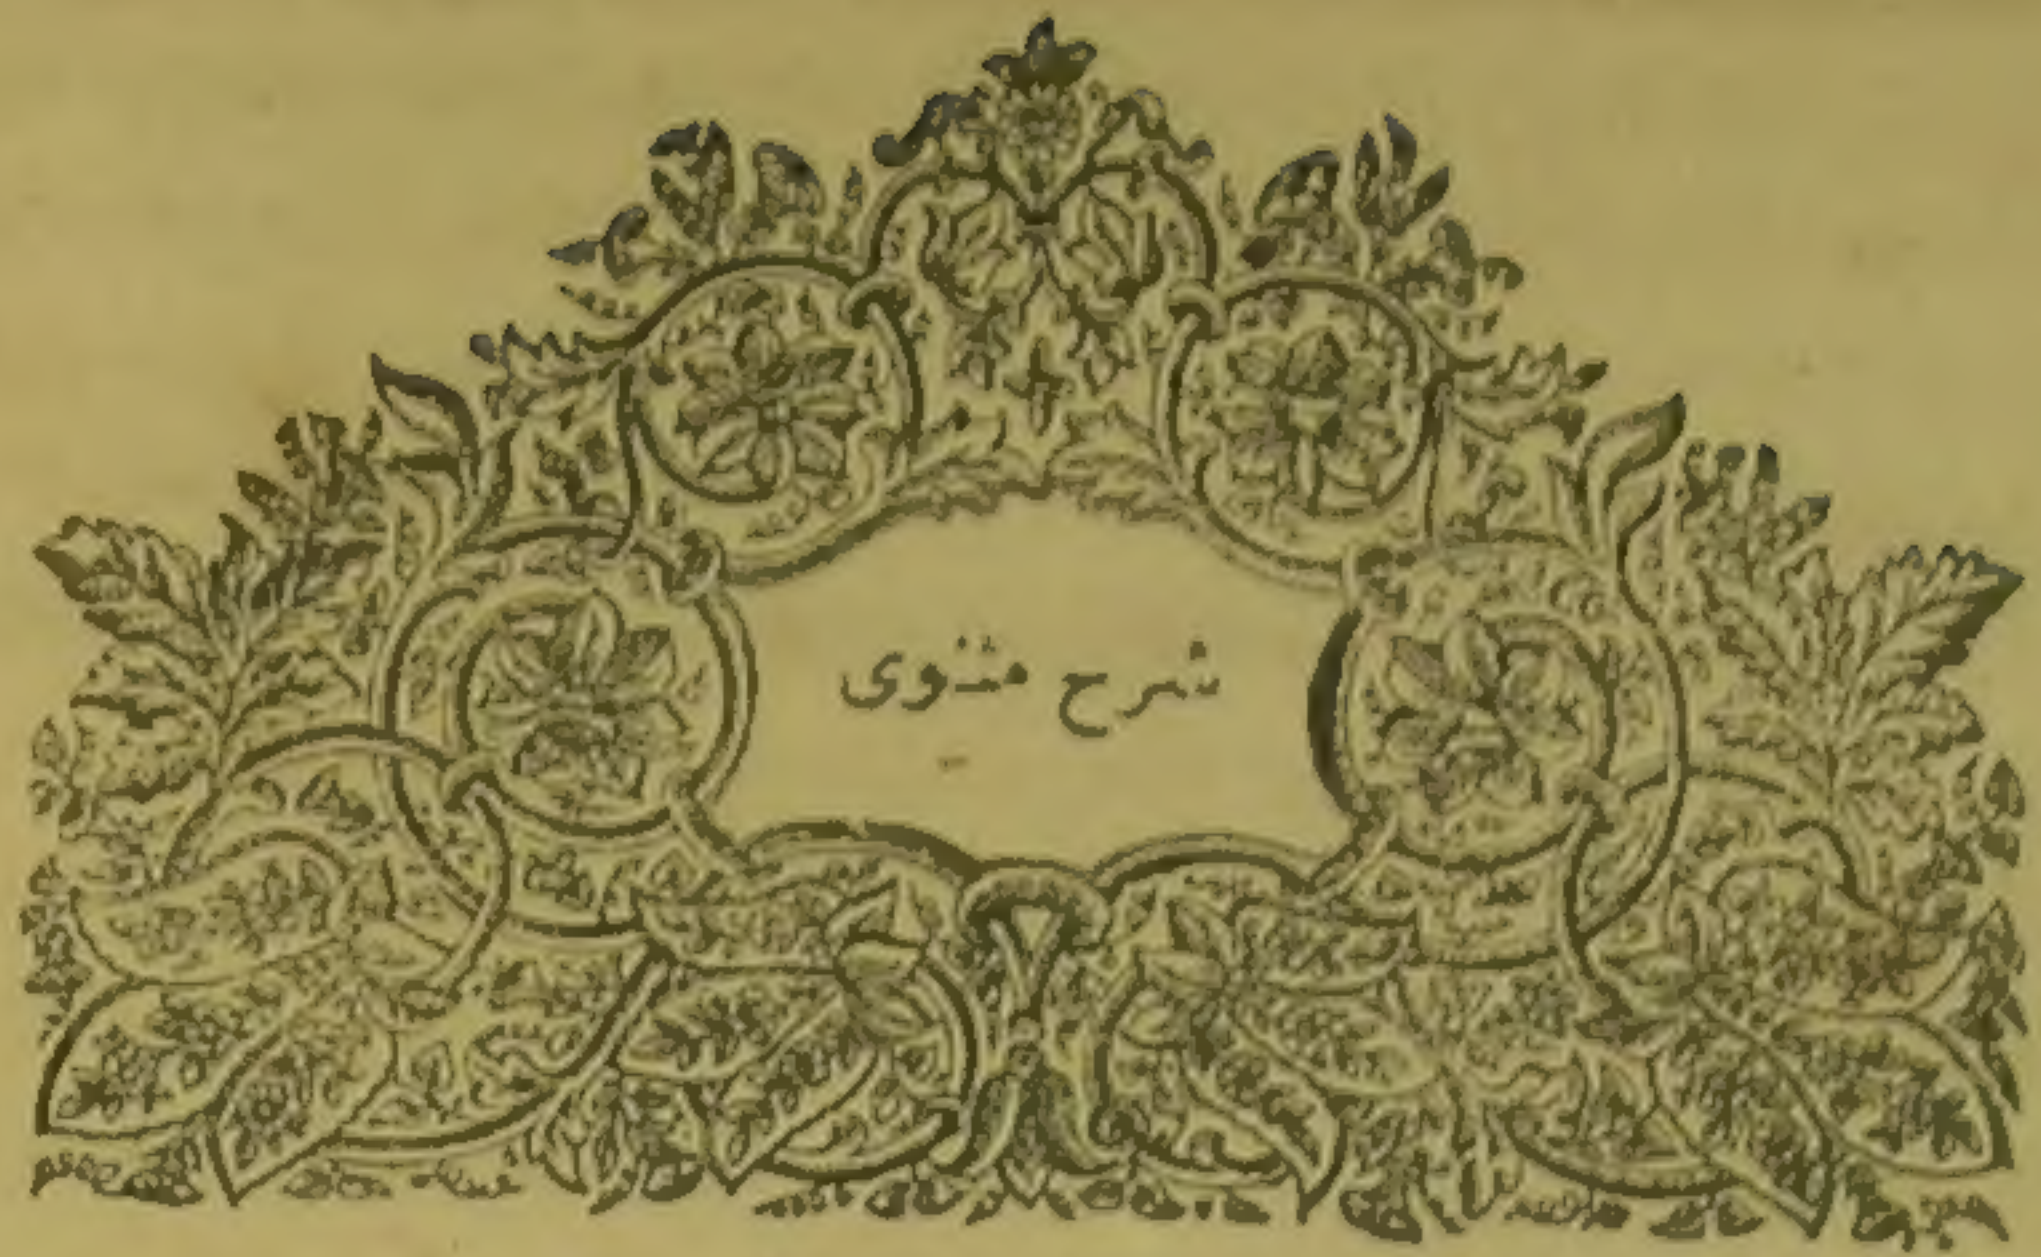 شرح مثنوی